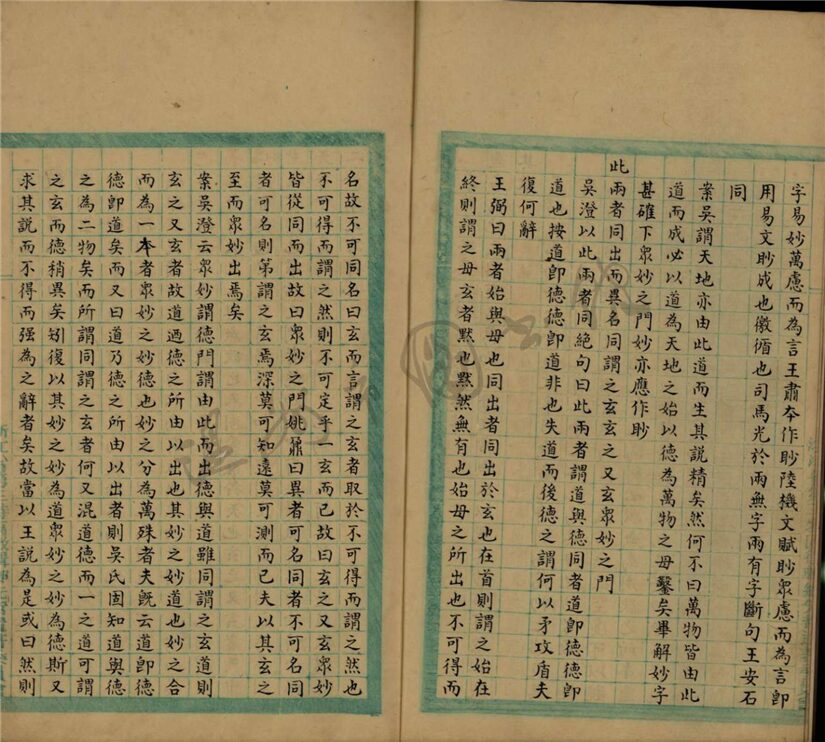 字易妙萬慮而為言王肅夲作眇陸機文賦眇衆慮而為言卽
用易文眇成也徽循也司馬光於兩無字兩有字斷句王安石
同
案吳謂天地亦由此道而生其説精矣然何不曰萬物皆由此
道而成必以道為天地之始以德為萬物之母鑿矣畢解妙字
甚確下衆妙之門妙亦應作眇
此兩者同出而異名同謂之玄玄之又玄衆妙之門
吳澄以此兩者同絶句曰此兩者謂道與德同者道卽德德卽
道也按道卽德德卽道非也失道而後德之謂何以矛攻盾夫
復何辭
王弼曰兩者始與母也同出者同出於玄也在首則謂之始在
終則謂之母玄者默也黙然無有也始母之所出也不可得而
名故不可同名曰玄而言謂之玄者取於不可得而謂之然也
不可得而謂之然則不可定乎一玄而已故曰玄之又玄衆妙
皆從同而出故曰衆妙之門姚鼐曰異者可名同者不可名同
者可名則第謂之玄焉深莫可知遠莫可測而已夫以其玄之
至而衆妙出焉矣
案吳澄云衆妙謂德門謂由此而出德與道雖同謂之玄道則
玄之又玄者故道迺德之所由以出也其妙之妙道也妙之合
而為一本者衆妙之妙德也妙之分為萬殊者夫旣云道卽德
德卽道矣而又曰道乃德之所由以出者則吳氏固知道與德
之為二物矣而所謂同謂之玄者何又混道德而一之道可謂
之玄而德稍異矣矧復以其妙之妙為道衆妙之妙為德斯又
求其説而不得而强為之辭者矣故當以王説為是或曰然則